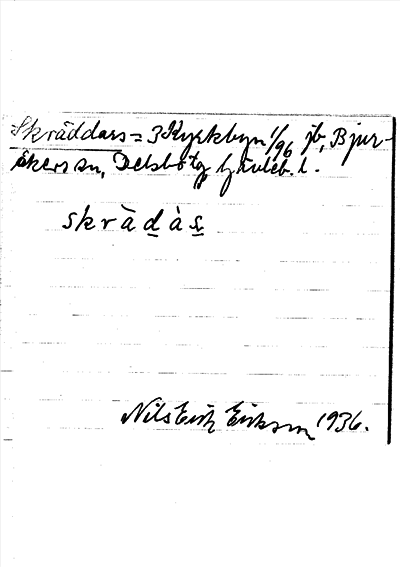 Skräddars = 3 Kyrkbyn 1/96 jb, Bjur-
åkers sn, Delsbo tg Gävleb. l.
skràdàs
Nils Erik Erikson 1936.